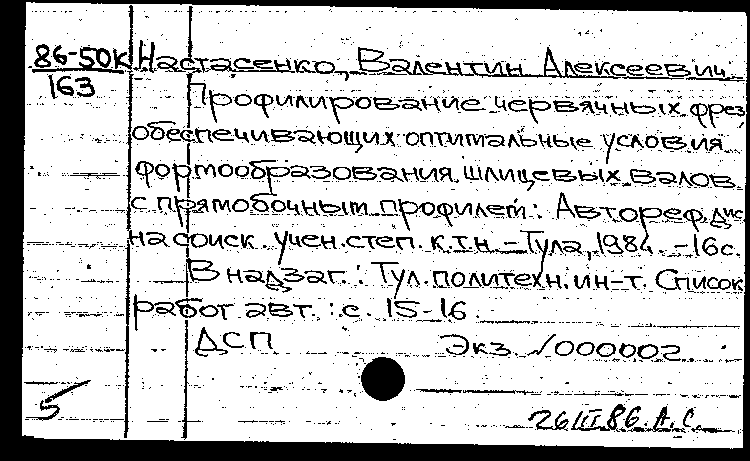 86-50К Настасенко, Валентин Алексеевич.
163 Профилирование червячных фрез,
обеспечивающих оптимальные условия
формообразования шлицевых валов
с прямобочным профилем: Автореф. дис.
на соиск. учен. степ. к.т.н. - Тула, 1984. - 16 с.
В надзаг.: Тул. политехн. ин-т. Список
работ авт.: с. 15-16.
ДСП Экз. №000002.
5
26 III 86. А. С.